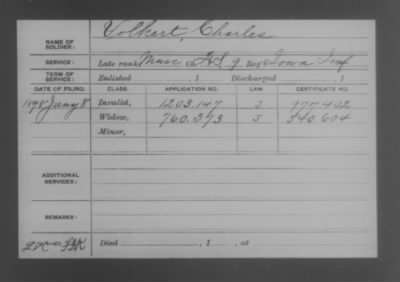 NAME OF SOLDIER: Volkert, Charles
SERVICE: Late rank Musc Co. F.S. 9 Reg't Iowa Inf
TERM OF SERVICE: Enlisted , 1 Discharged , 1
DATE OF FILING. CLASS. APPLICATION NO. LAW. CERTIFICATE NO.
1898 Jany 8 Invalid, 1203.147 J 977402
Widow, 760.373 J 540604
Minor,
ADDITIONAL SERVICES:
REMARKS:
Died , 1 , at